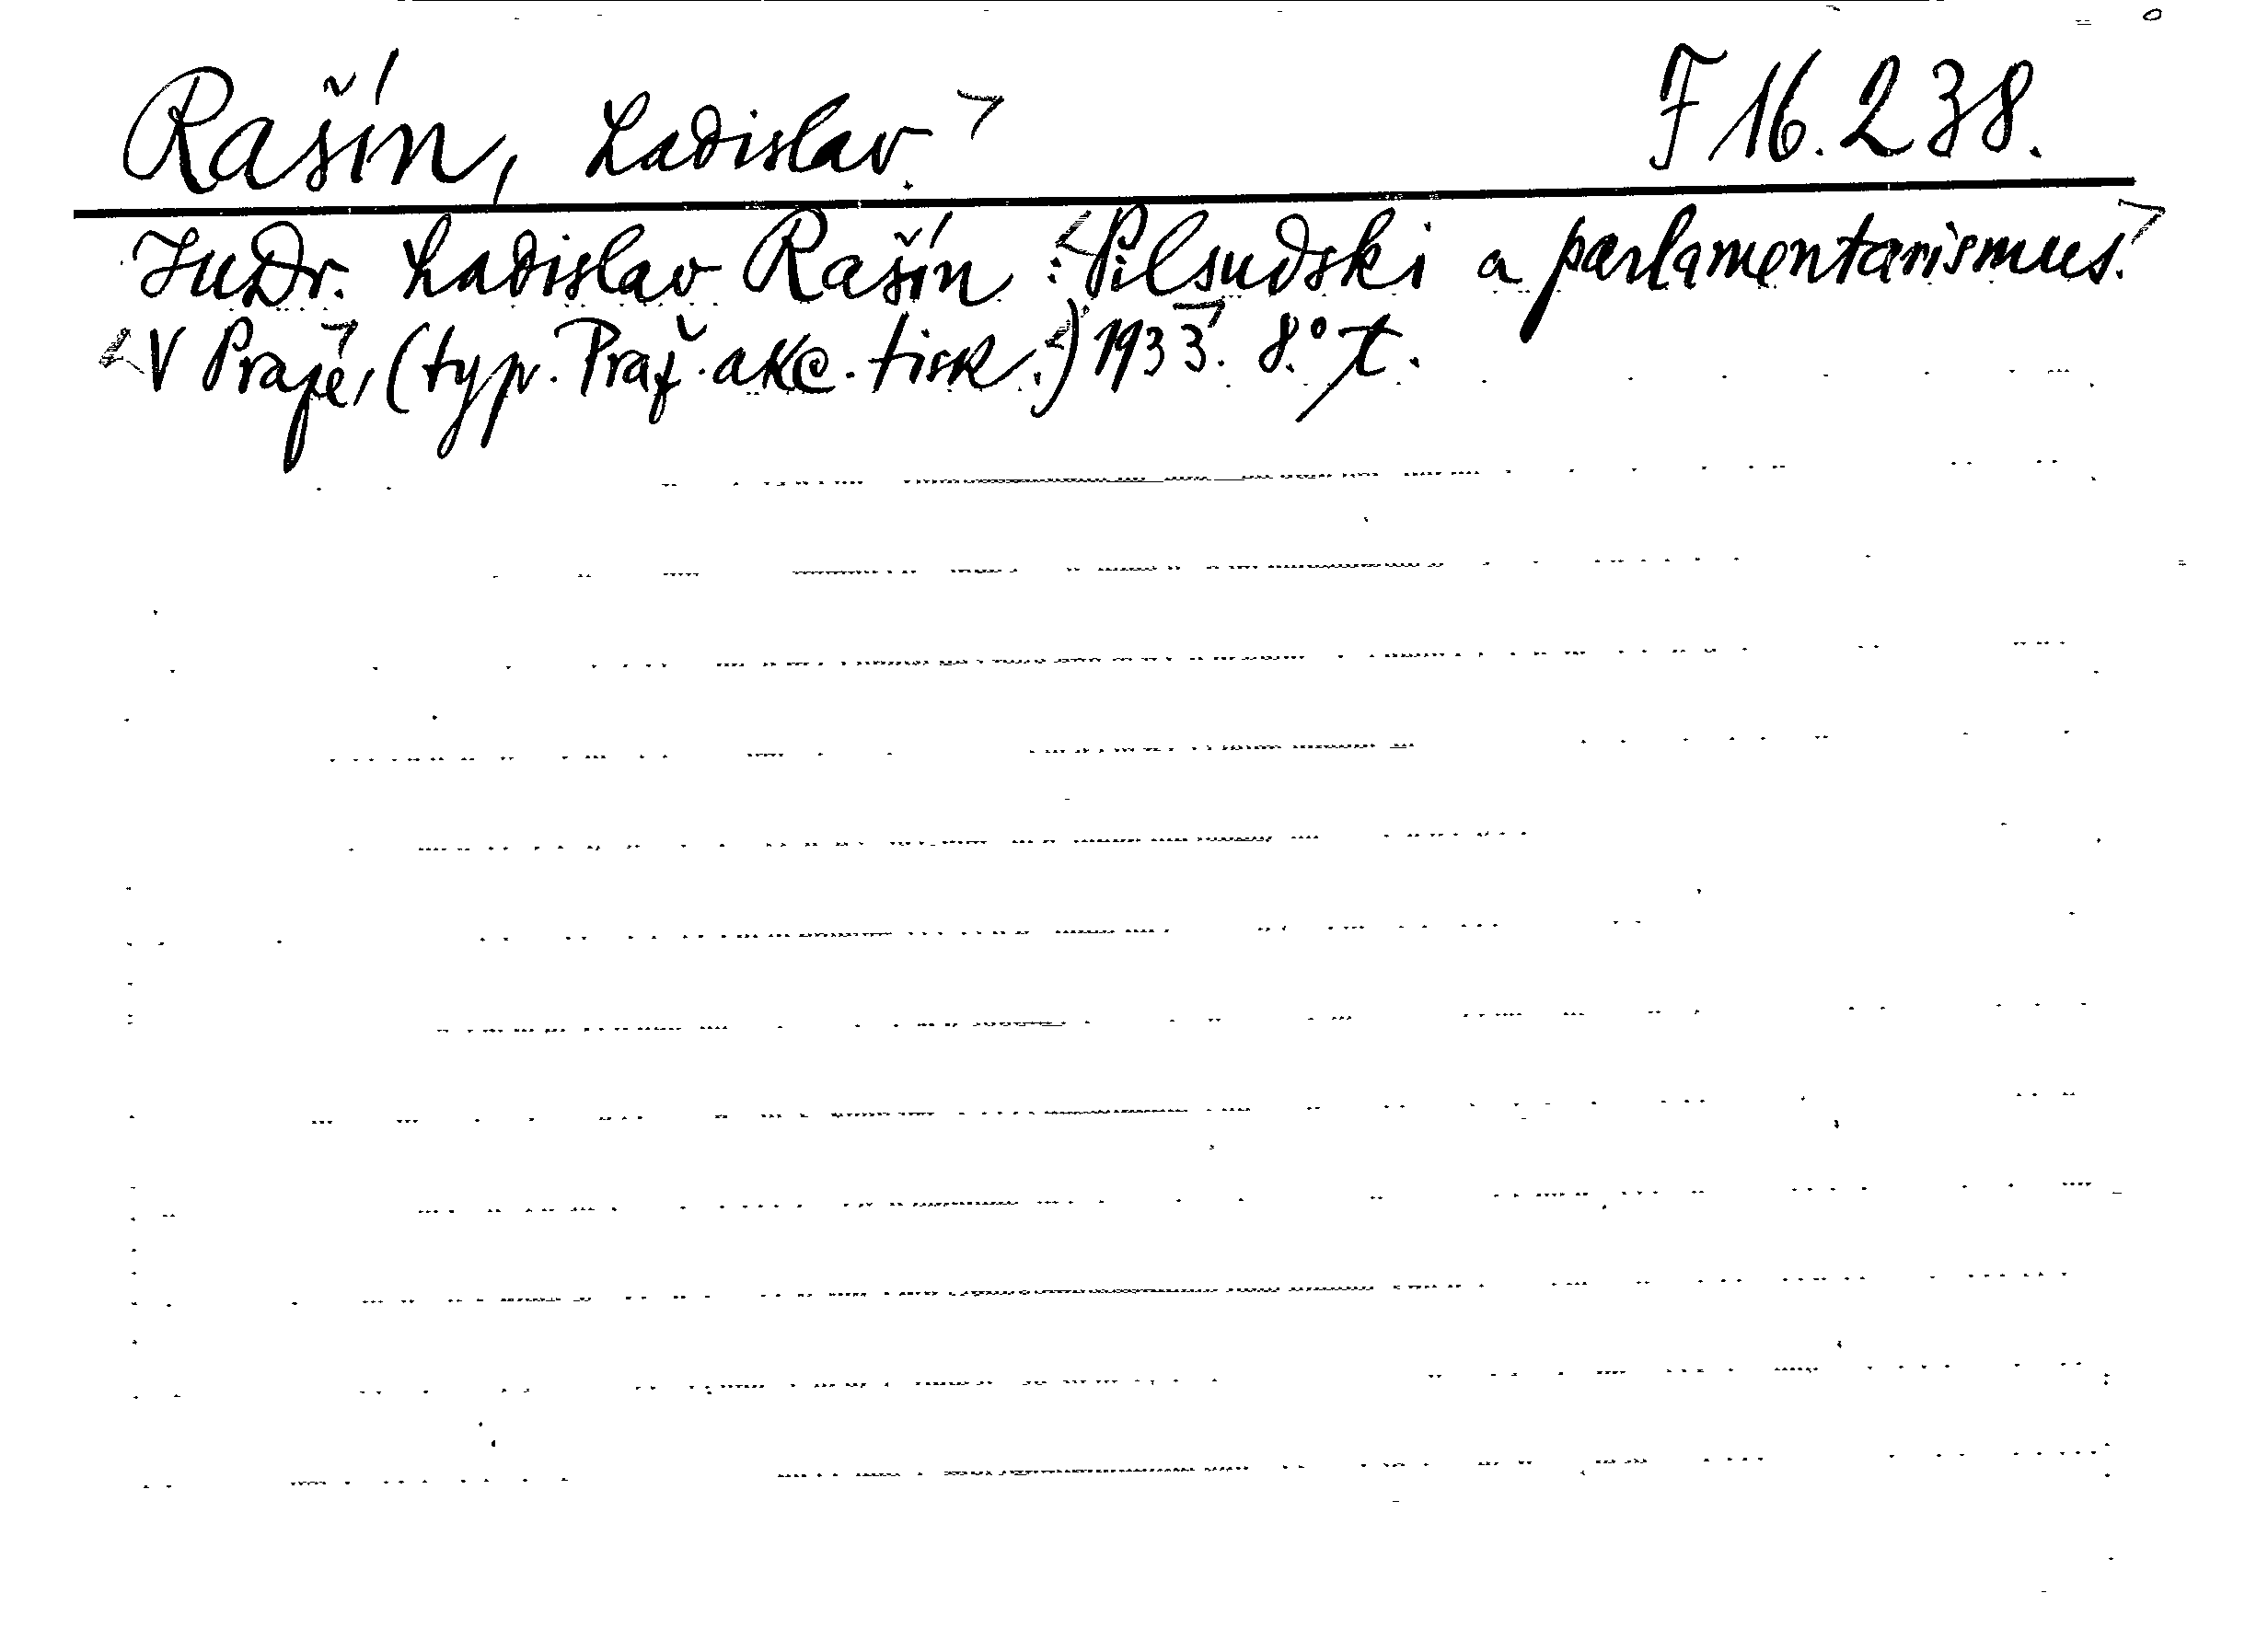 Rašín, Ladislav. F 16.238.
JuDr. Ladislav Rašín: Pilsudski a parlamentarismus.
V Praze, (typ. Praž. akc. tisk.) 1933. 8.°